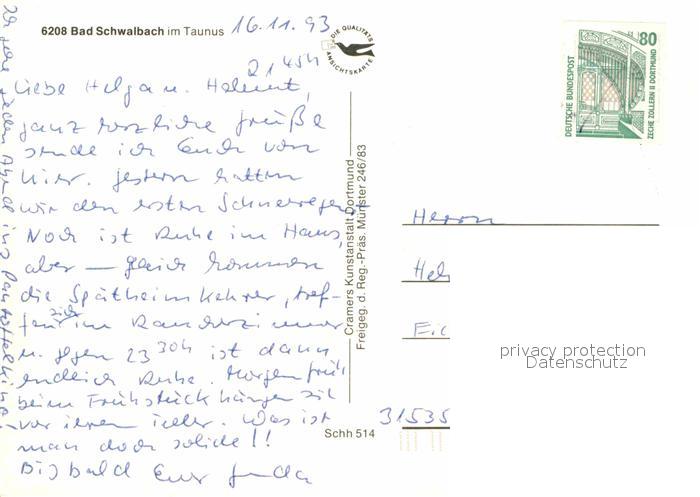 6208 Bad Schwalbach im Taunus
16.11.93
21 45h
DIE QUALITÄTS
ANSICHTSKARTE
Liebe Helga u. Helmut,
ganz herzliche Grüße
sende ich Euch von
hier. Gestern hatten
wir den ersten Schneeregen
Noch ist Ruhe im Haus,
aber — gleich kommen
die Spätheimkehrer, tref-
fen sich im Raucherzimmer
u. gegen 23 30h ist dann
endlich Ruhe. Morgen früh
beim Frühstück hängen sie
vor ihrem Teller. Was ist
man doch solide!!
Bis bald Eure
jeden Abend ins Pantoffelkino
Cramers Kunstanstalt Dortmund
Freigeg. d. Reg.-Präs. Münster 246/83
Schh 514
DEUTSCHE BUNDESPOST
80
ZECHE ZOLLERN II DORTMUND
Herrn
Hel
Eic
31535
privacy protection
Datenschutz